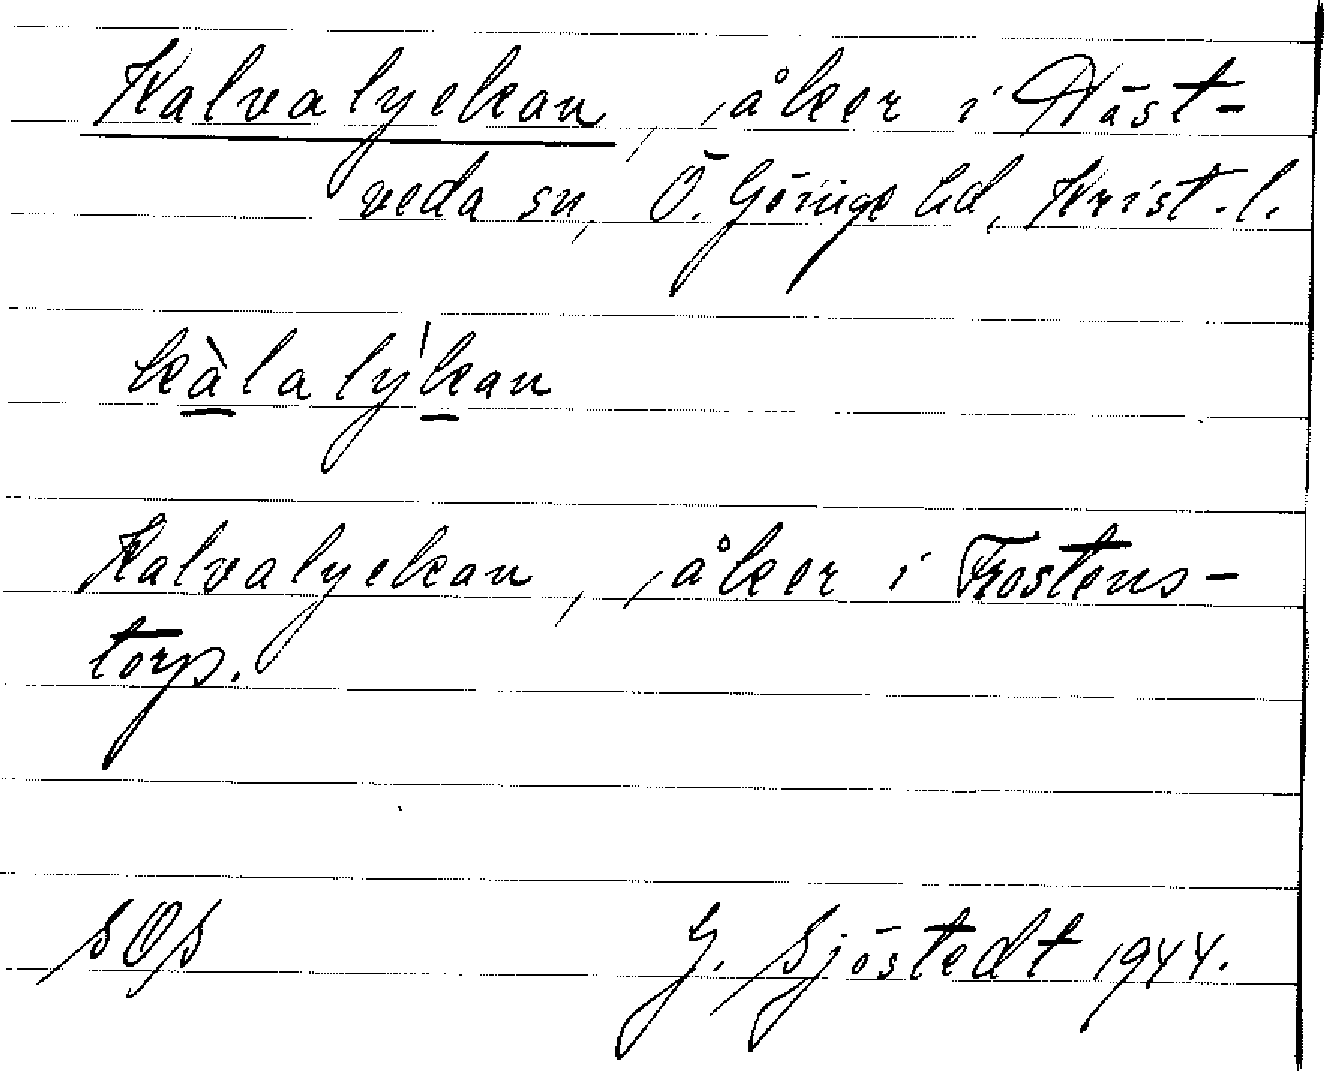 Kalvalyckan, åker i Näst-
veda sn, Ö. Göinge hd, Krist. l.
kàlalỳkan
Kalvalyckan, åker i Frostens-
torp.
sOs G. Sjöstedt 1944.